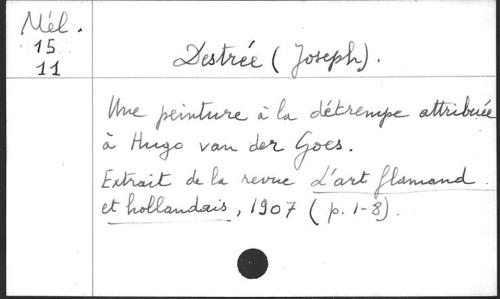 Mél.
15
11
Destrée (Joseph).
Une peinture à la détrempe attribuée
à Hugo van der Goes.
Extrait de la revue L'art flamand
et hollandais, 1907 (p. 1-8).